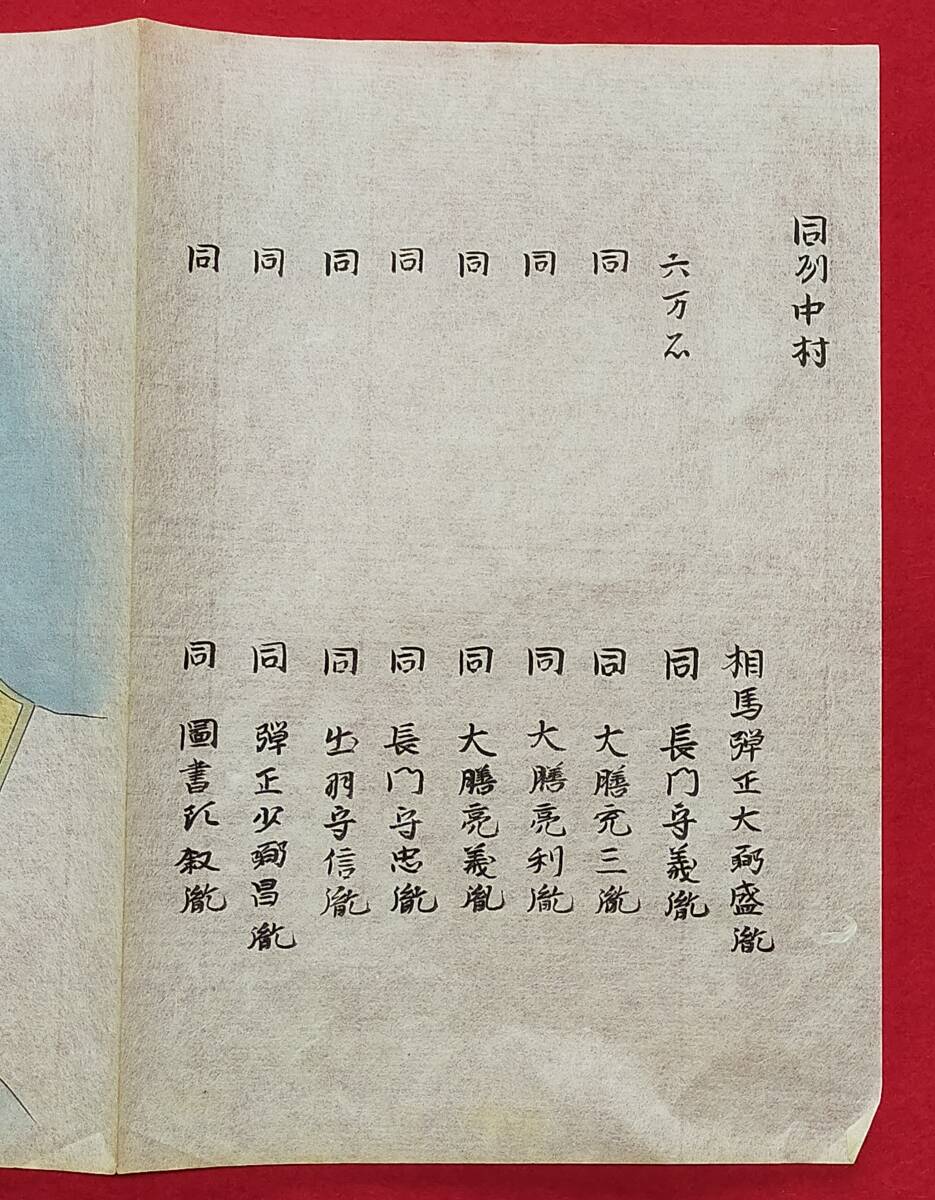 同列中村
相馬弾正大弼盛胤
六万石 同 長門守義胤
同 同 大膳亮三胤
同 同 大膳亮利胤
同 同 大膳亮義胤
同 同 長門守忠胤
同 同 出羽守信胤
同 同 弾正少弼昌胤
同 同 圖書頭叙胤